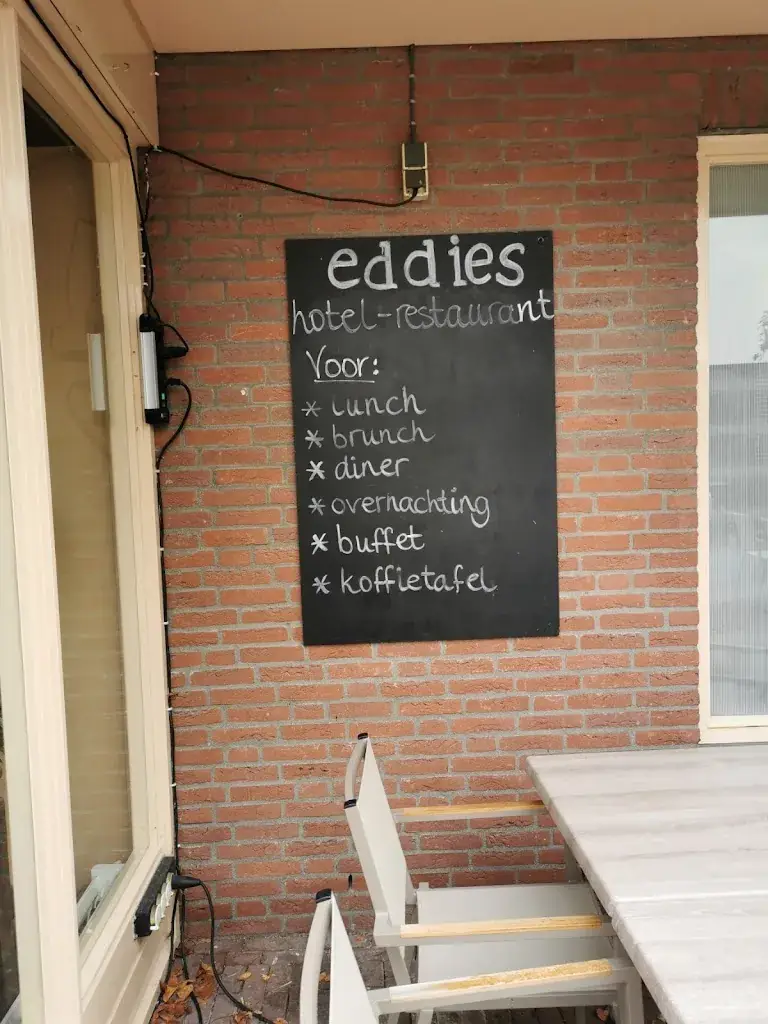 eddies
hotel-restaurant
Voor:
* lunch
* brunch
* diner
* overnachting
* buffet
* koffietafel